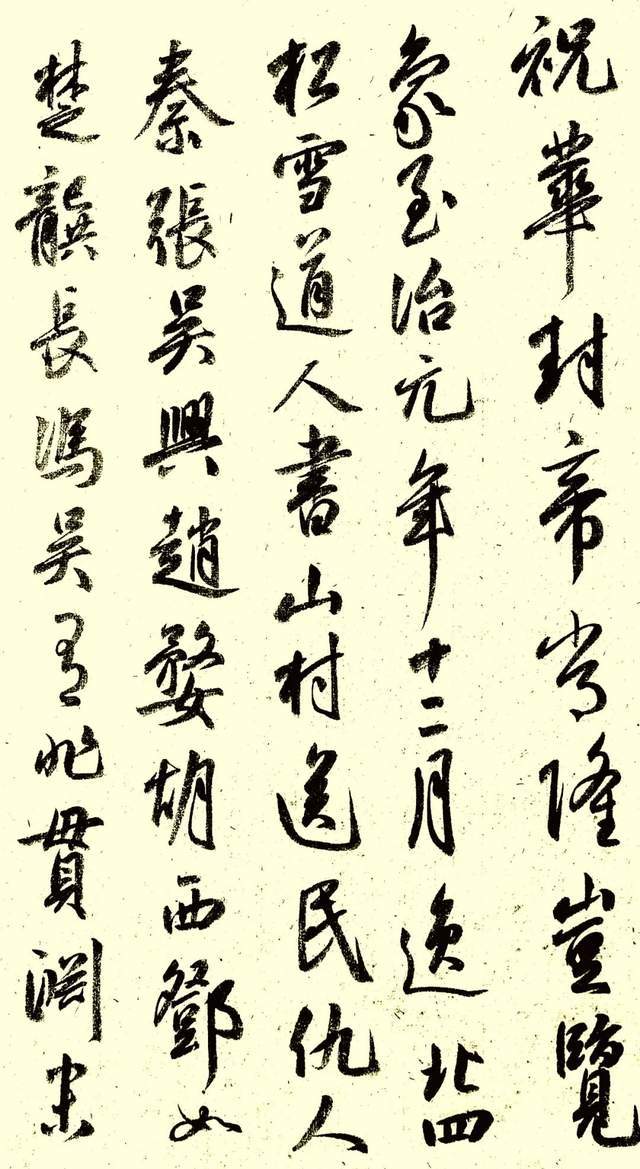 祝華封帝隆豈覽
象至治元年十二月逸北四
松雪道人書山村送民仇人
秦張吳興趙婺胡西鄧如
楚龔長馮吳貫淵